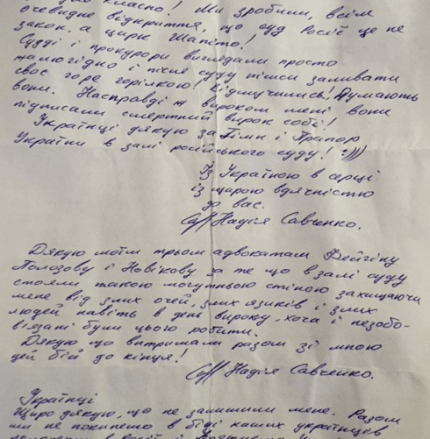 класно! Ми зробили, всім
очевидне відкриття, що суд Росії це не
закон, а цирк Шапіто!
Судді і прокурори виглядали просто
жалюгідно і після суду пішли заливати
своє горе горілкою! Відмучились! Думають
вони. Насправді ж вироком мені вони
підписали смертний вирок собі!
Українці дякую за Гімн і Прапор
України в залі російського суду! :-)))
Із Україною в серці
із щирою вдячністю
до вас.
Надія Савченко.
Дякую моїм трьом адвокатам Фейгіну
Полозову і Новікову за те що в залі суду
стояли такою могутньою стіною захищаючи
мене від злих очей, злих язиків і злих
людей навіть в день вироку, хоча і незобо-
в'язані були цього робити.
Дякую що витримали разом зі мною
цей бій до кінця!
Надія Савченко.
Українці
Щиро дякую, що не залишили мене. Разом
ми не покинемо в біді наших українців
в Росії і